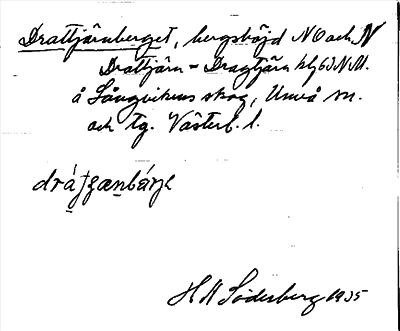 Drattjärnberget, bergshöjd NO och N
Drattjärn = Dragtjärn
å Långvikens skog, Umeå sn.
och tg. Västerb. l.
H A Söderberg 1935